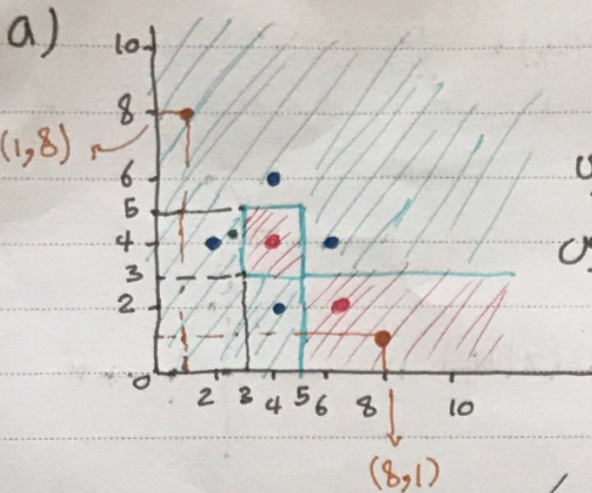 a)
10
8
(1,8)
6
5
4
3
2
0
2 3 4 5 6 8 10
(8,1)